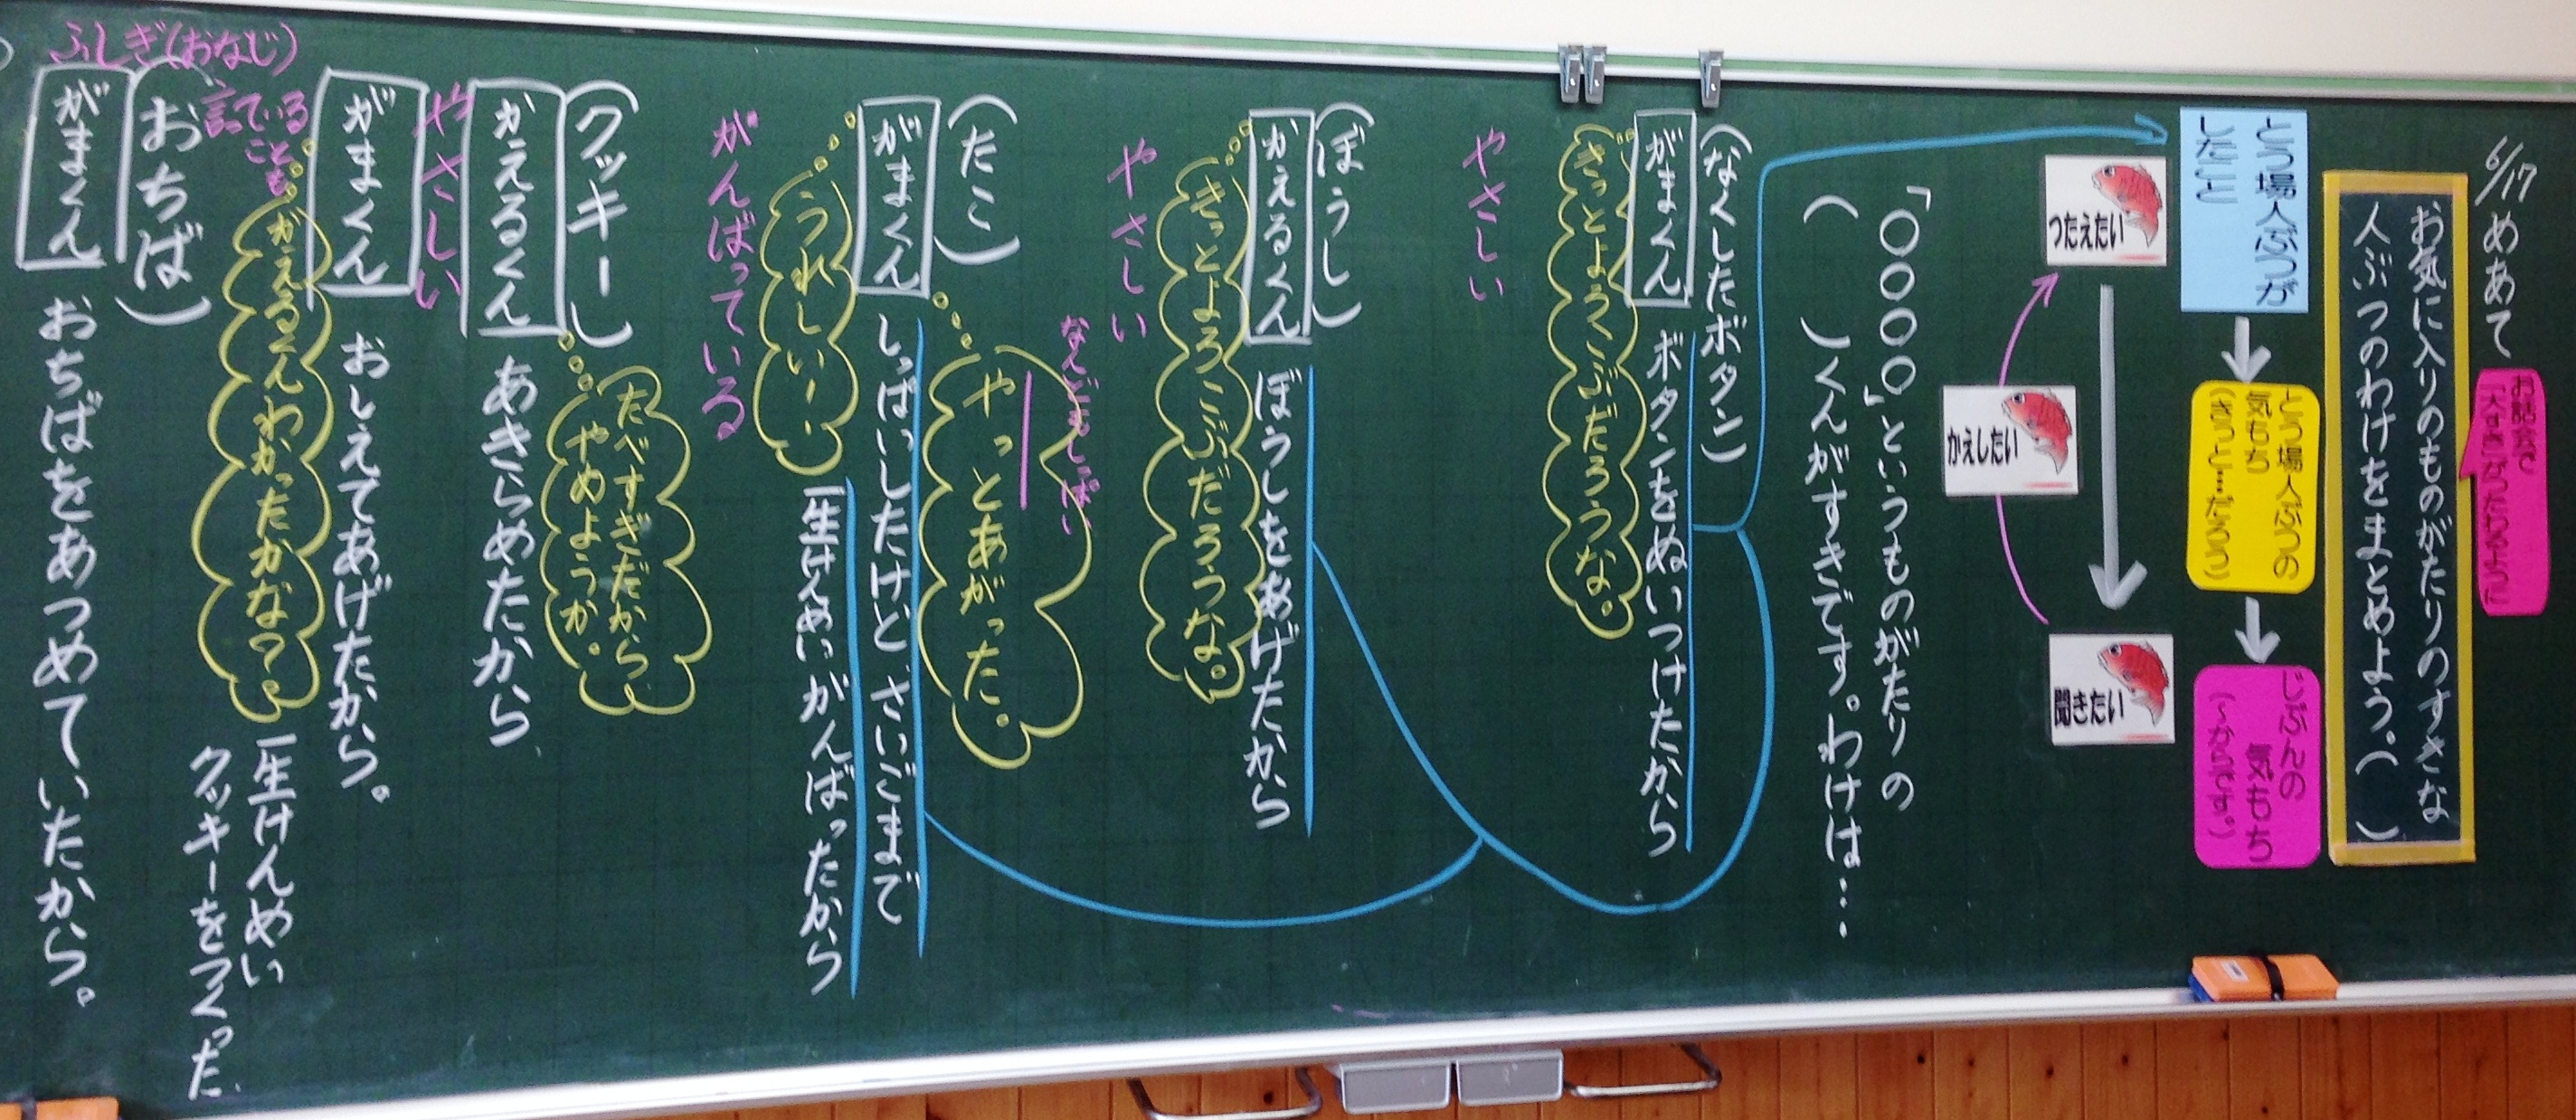 6/17 めあて
お話会で
「大すき」がつたわるように
お気に入りのものがたりのすきな
人ぶつのわけをまとめよう。( )
とう場人ぶつが
したこと
とう場人ぶつの
気もち
(きっと…だろう)
じぶんの
気もち
(~からです。)
つたえたい
かえしたい
聞きたい
「○○○○」というものがたりの
( )くんがすきです。わけは…
(なくしたボタン)
がまくん
ボタンをぬいつけたから
きっとよろこぶだろうな。
やさしい
(ぼうし)
かえるくん
ぼうしをあげたから
きっとよろこぶだろうな。
やさしい
なんどもしっぱい
(たこ)
やっとあがった。
がまくん
しっぱいしたけど、さいごまで
一生けんめいがんばったから
うれしい!
がんばっている
(クッキー)
たべすぎだから、
やめようか。
かえるくん
あきらめたから
やさしい
がまくん
おしえてあげたから。
かえるくんわかったかな?
一生けんめい
クッキーをつくった
ふしぎ(おなじ)
言っている
ことも
(おちば)
がまくん
おちばをあつめていたから。